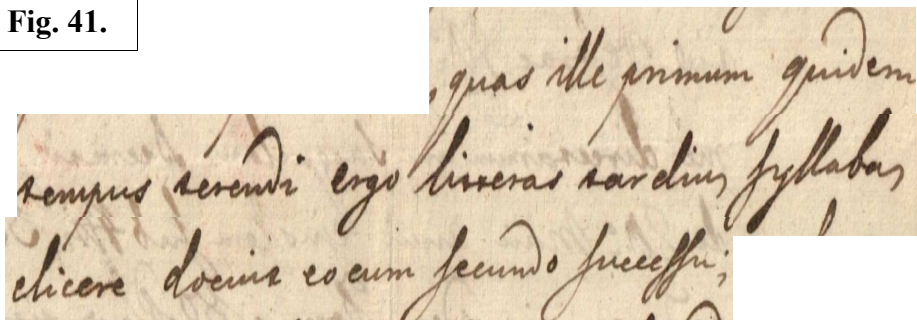 Fig. 41.
, quas ille primum quidem
tempus terendi ergo litteras tardius syllabas
elicere docuit eocum secundo successu;